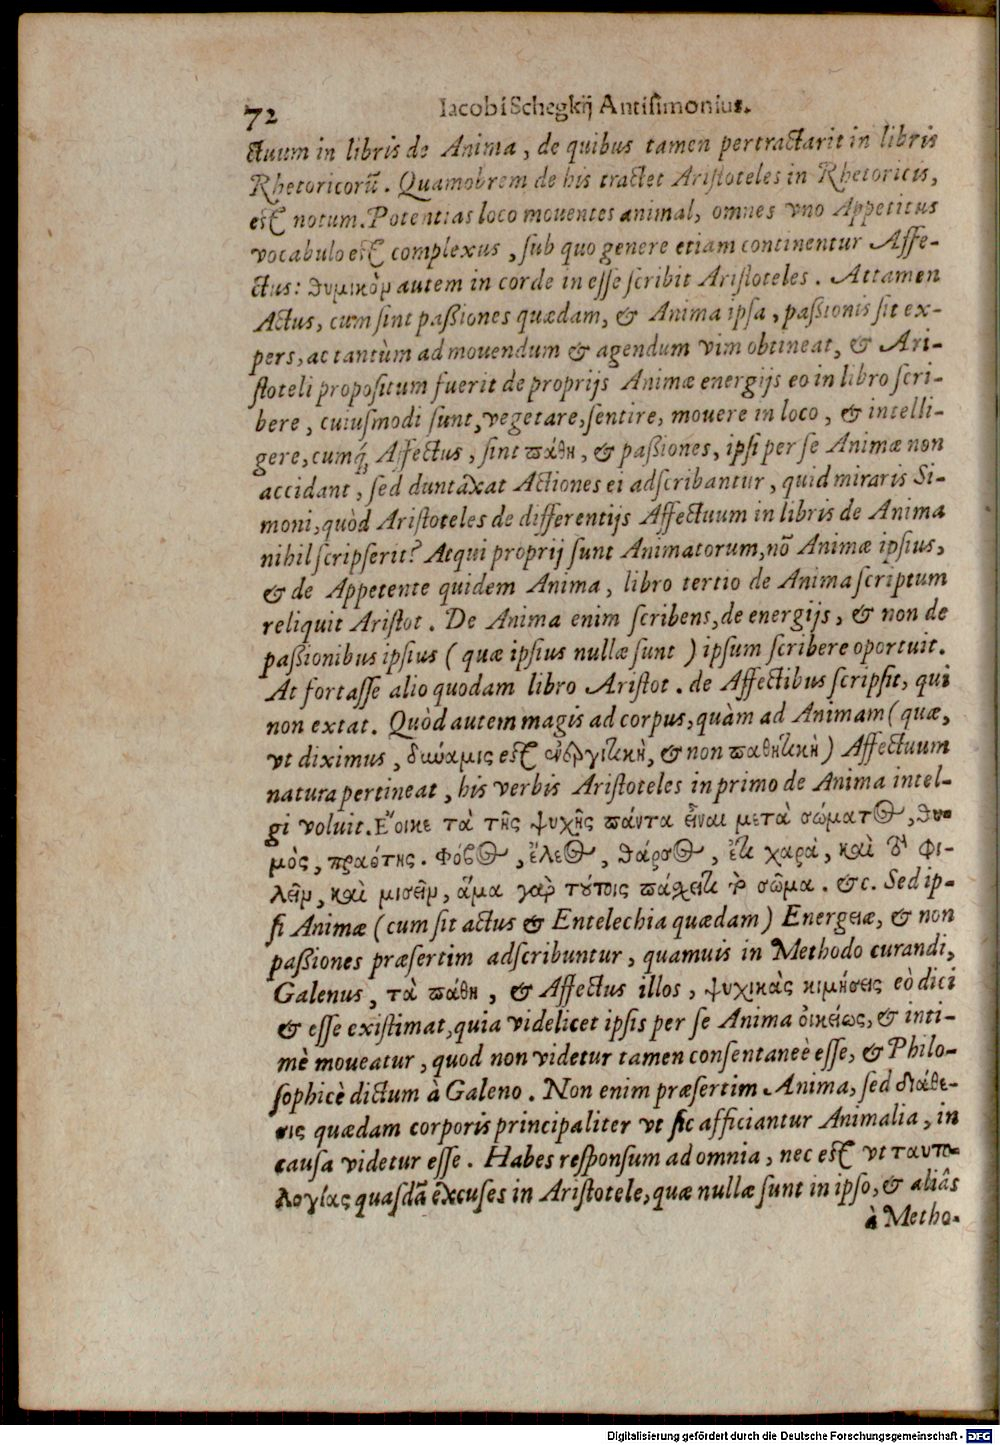 72 Iacobi Schegkij Antisimonius.
ctuum in libris de Anima, de quibus tamen pertractarit in libris
Rhetoricorũ. Quamobrem de his tractet Aristoteles in Rhetoricis,
est notum. Potentias loco mouentes animal, omnes vno Appetitus
vocabulo est complexus, sub quo genere etiam continentur Affe-
ctus: θυμικὸν autem in corde inesse scribit Aristoteles. Attamen
Actus, cum sint passiones quædam, & Anima ipsa, passionis sit ex-
pers, ac tantùm ad mouendum & agendum vim obtineat, & Ari-
stoteli propositum fuerit de proprijs Animæ energijs eo in libro scri-
bere, cuiusmodi sunt, vegetare, sentire, mouere in loco, & intelli-
gere, cumq́; Affectus, sint πάθη, & passiones, ipsi per se Animæ non
accidant, sed duntaxat Actiones ei adscribantur, quid miraris Si-
moni, quòd Aristoteles de differentijs Affectuum in libris de Anima
nihil scripserit? Atqui proprij sunt Animatorum, nõ Animæ ipsius,
& de Appetente quidem Anima, libro tertio de Anima scriptum
reliquit Aristot. De Anima enim scribens, de energijs, & non de
passionibus ipsius ( quæ ipsius nullæ sunt ) ipsum scribere oportuit.
At fortasse alio quodam libro Aristot. de Affectibus scripsit, qui
non extat. Quòd autem magis ad corpus, quàm ad Animam ( quæ,
vt diximus, δύναμις est ἐνεργητικὴ, & non παθητικὴ ) Affectuum
natura pertineat, his verbis Aristoteles in primo de Anima intel-
gi voluit. Ἔοικε τὰ τῆς ψυχῆς πάντα εἶναι μετὰ σώματος, θυ-
μὸς, πραότης. Φόβος, ἔλεος, θάρσος, ἔτι χαρὰ, καὶ τὸ φι-
λεῖν, καὶ μισεῖν, ἅμα γὰρ τούτοις πάσχει τι τὸ σῶμα. &c. Sed ip-
si Animæ ( cum sit actus & Entelechia quædam ) Energeiæ, & non
passiones præsertim adscribuntur, quamuis in Methodo curandi,
Galenus, τὰ πάθη, & Affectus illos, ψυχικὰς κιμήσεις eò dici
& esse existimat, quia videlicet ipsis per se Anima οἰκείως, & inti-
mè moueatur, quod non videtur tamen consentaneè esse, & Philo-
sophicè dictum à Galeno. Non enim præsertim Anima, sed διάθε-
σις quædam corporis principaliter vt sic afficiantur Animalia, in
causa videtur esse. Habes responsum ad omnia, nec est vt ταυτο-
λογίας quasdã excuses in Aristotele, quæ nullæ sunt in ipso, & aliâs
à Metho-
Digitalisierung gefördert durch die Deutsche Forschungsgemeinschaft - DFG